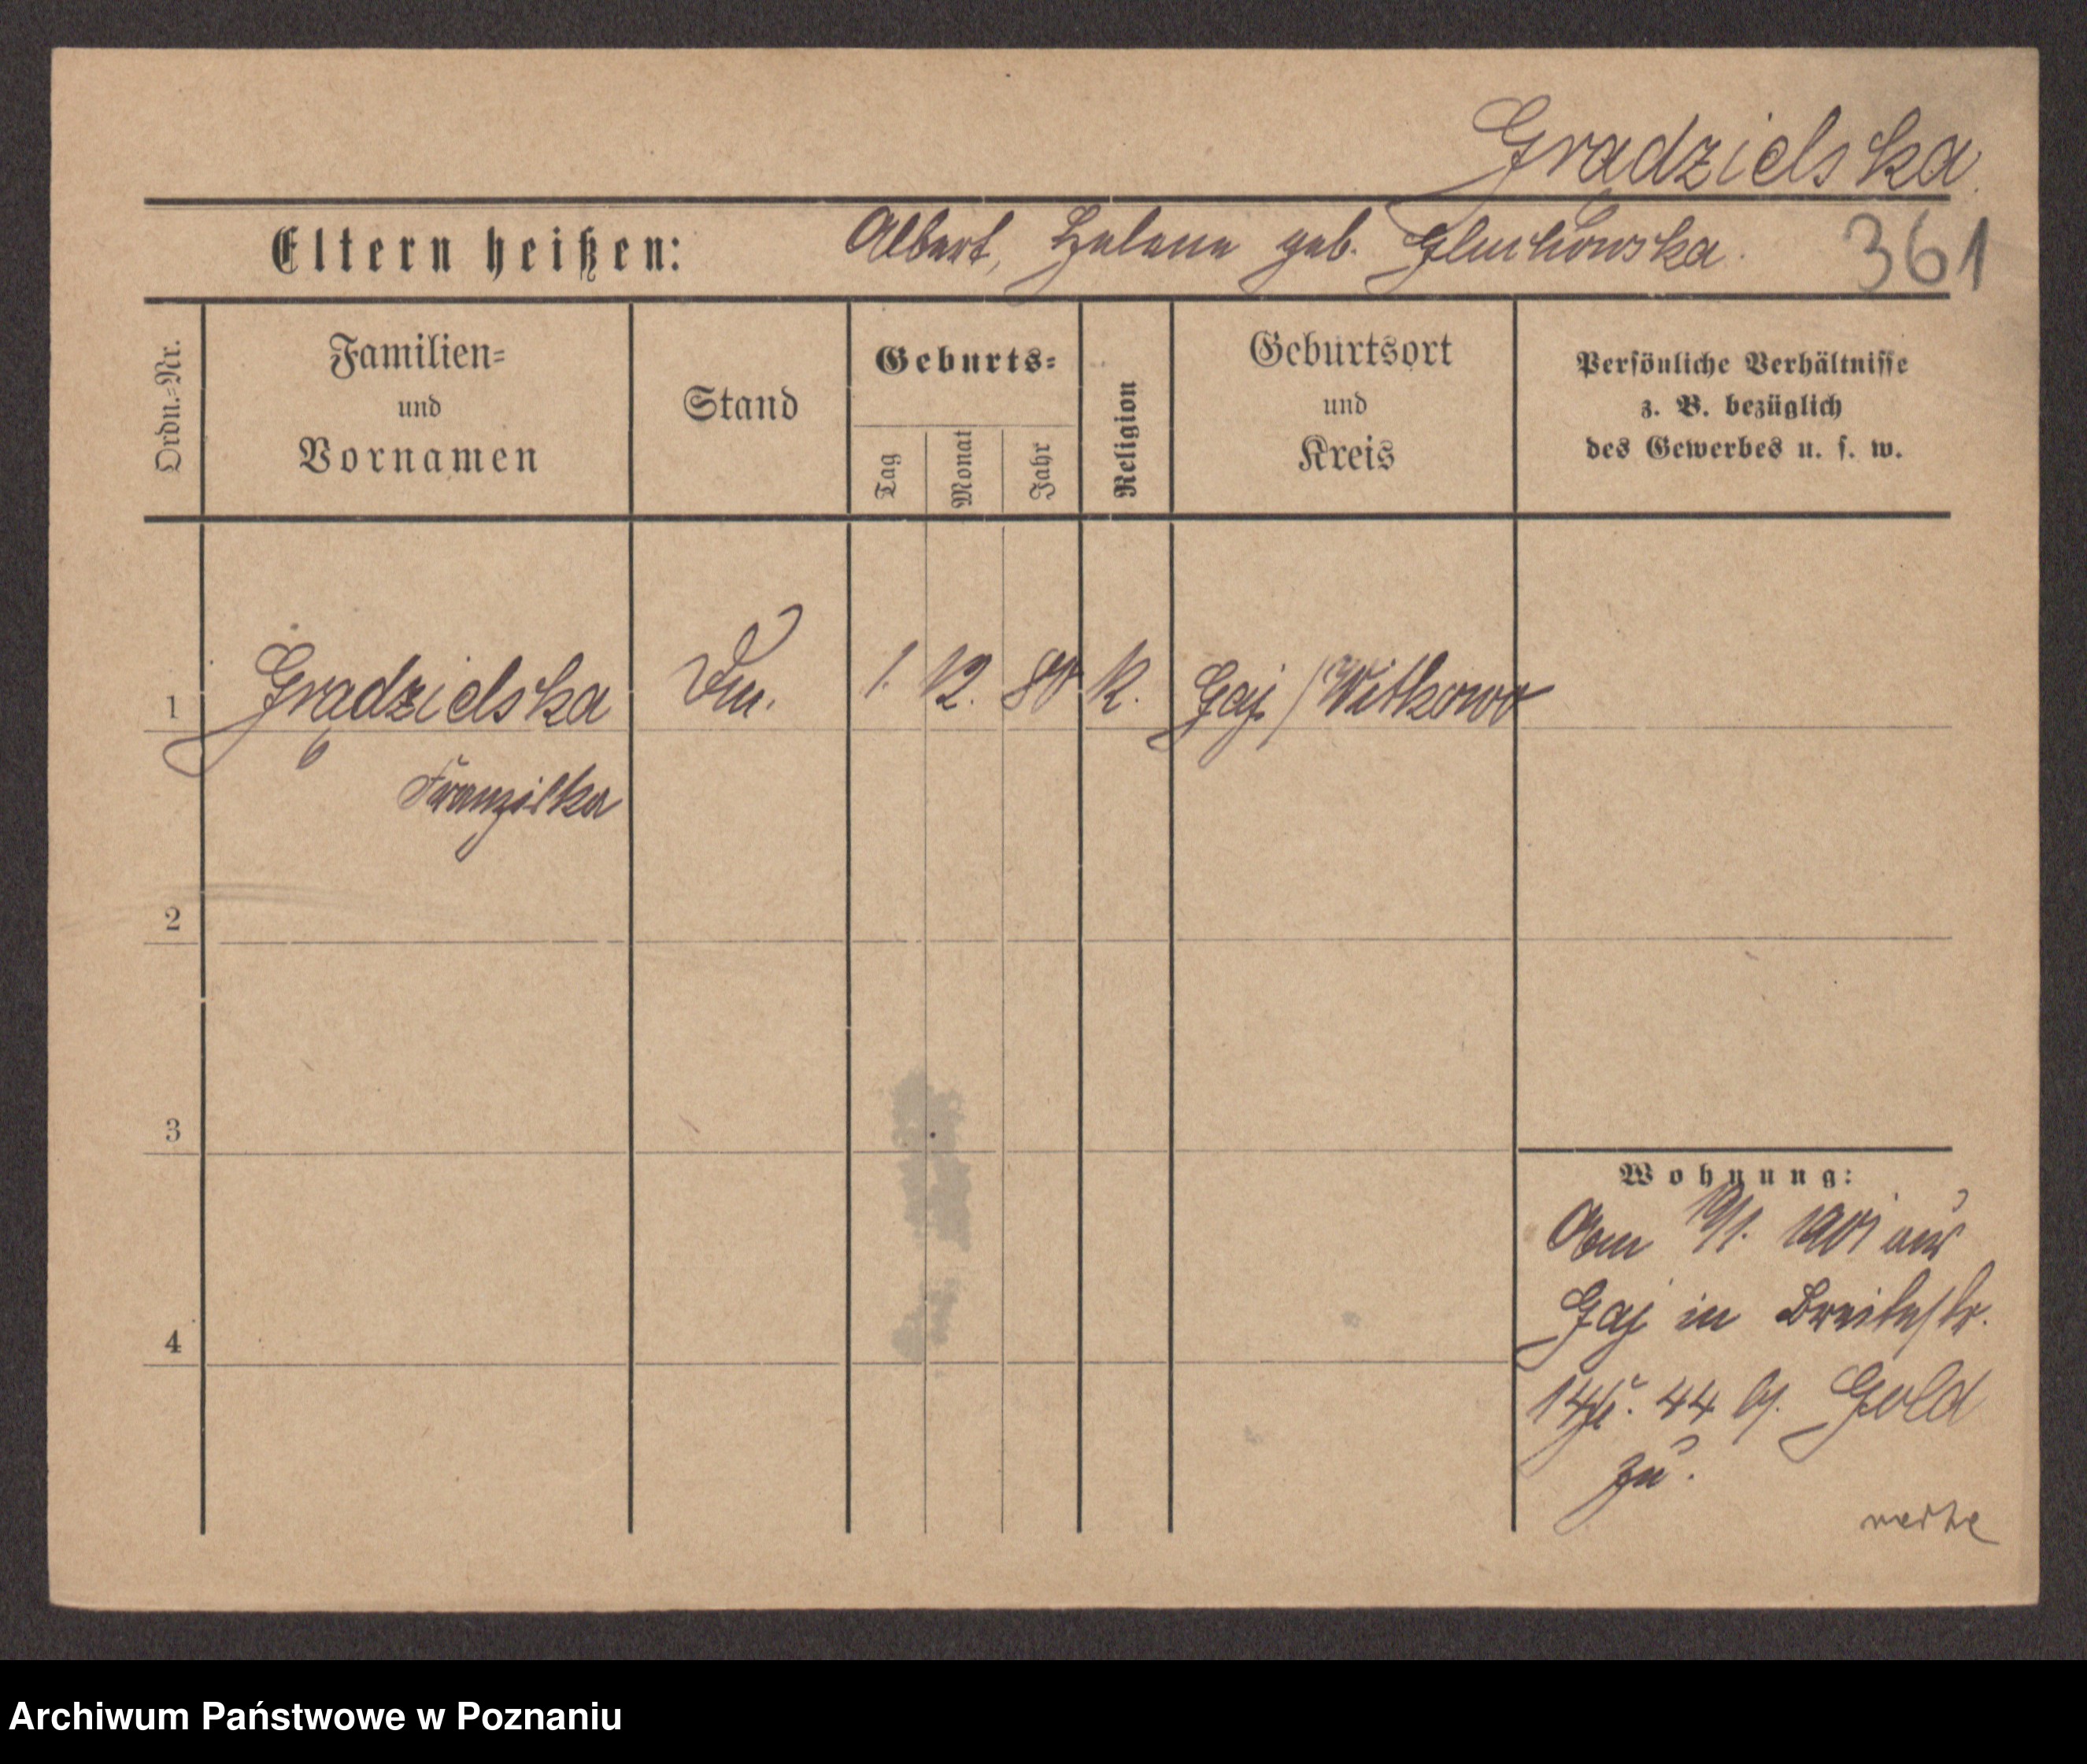 Grądzielska
Eltern heißen: Albert, Helene geb. Gluchowska. 361
Ordn.=Nr.
Familien=
und
Vornamen
Stand
Geburts=
Tag
Monat
Jahr
Religion
Geburtsort
und
Kreis
Persönliche Verhältnisse
z. B. bezüglich
des Gewerbes u. s. w.
1 Grądzielska 1. 12. 80 K. Gaj / Witkowo
Franziska
2
3
4
Wohnung:
Am 1901 aus
Gaj in Breitestr.
44 Gold
zu.
Archiwum Państwowe w Poznaniu